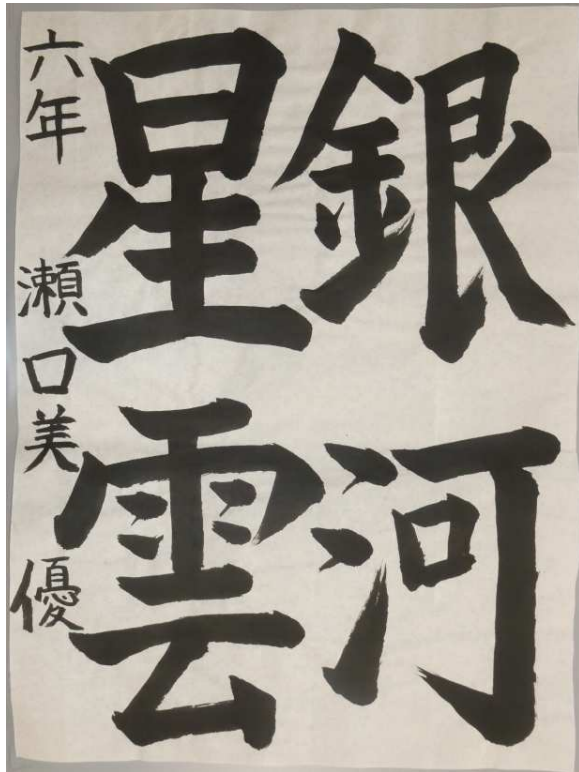 銀河
星雲
六年 瀬口美優